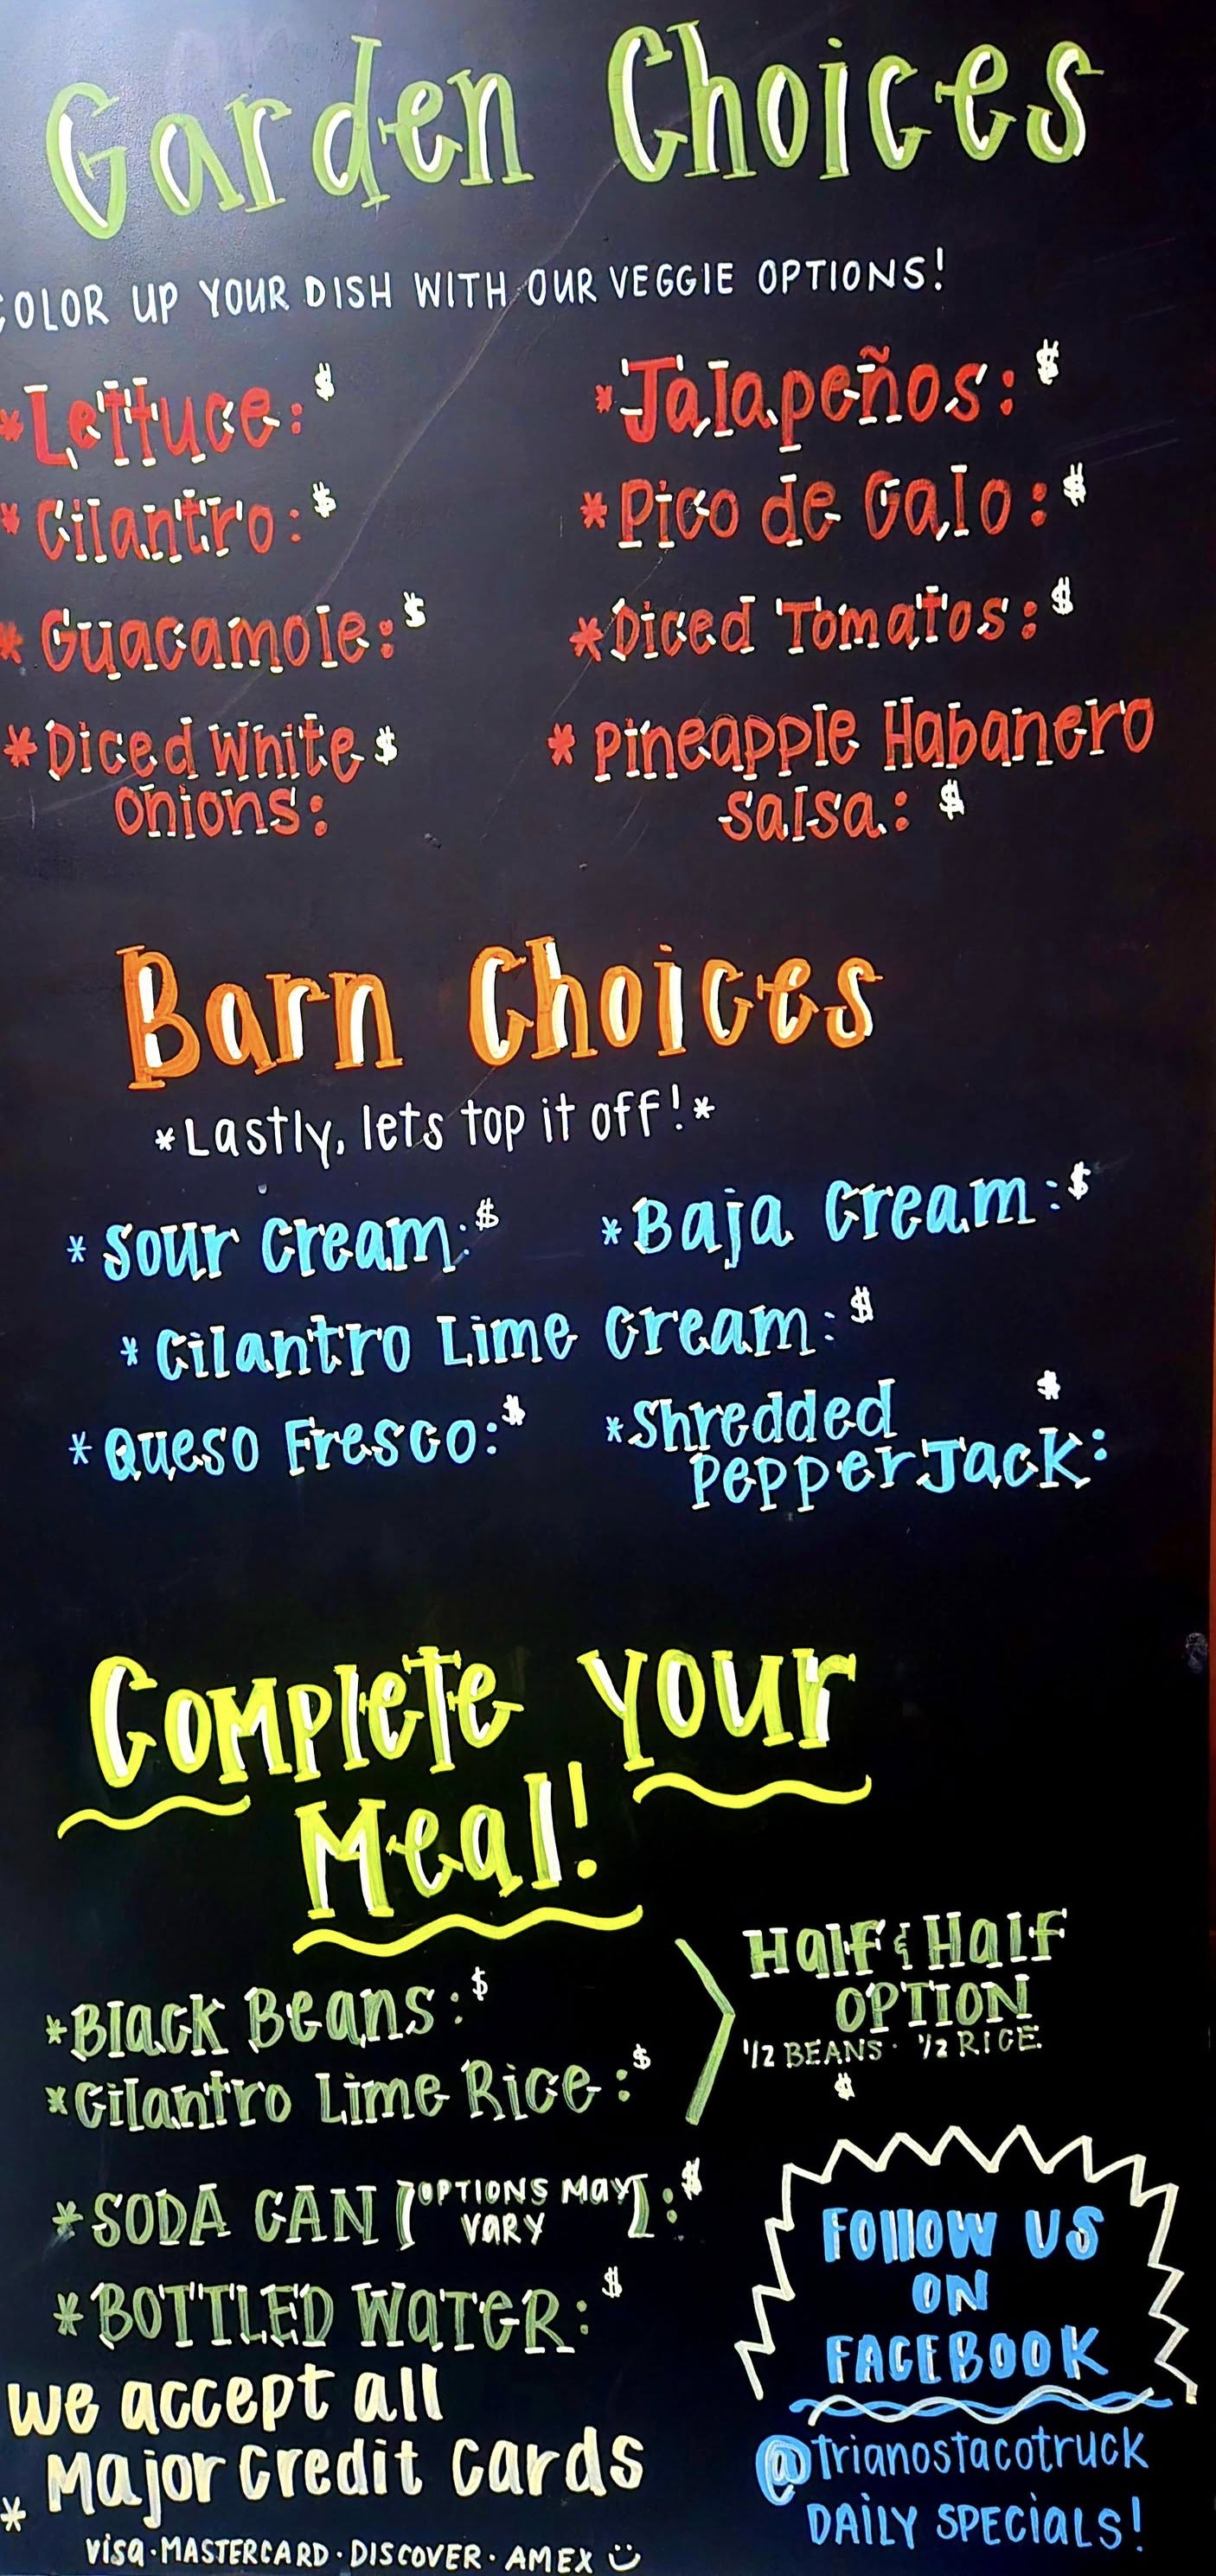 Garden Choices
COLOR UP YOUR DISH WITH OUR VEGGIE OPTIONS!
*Lettuce: $
*Jalapeños: $
*Cilantro: $
*Pico de Galo: $
*Guacamole: $
*Diced Tomatos: $
*Diced White $
Onions:
*Pineapple Habanero
Salsa: $
Barn Choices
*Lastly, lets top it off!*
*Sour Cream: $
*Baja Cream: $
*Cilantro Lime Cream: $
*Queso Fresco: $
*Shredded $
PepperJack:
Complete your
Meal!
*Black Beans: $
*Cilantro Lime Rice: $
Half & Half
OPTION
1/2 BEANS · 1/2 RICE
$
*SODA CAN [OPTIONS MAY
VARY]: $
*BOTTLED WATER: $
we accept all
* Major credit cards
Visa · MASTERCARD · DISCOVER · AMEX
FOllOW US
ON
FACEBOOK
@trianostacotruck
DAiLY SPECiALS!